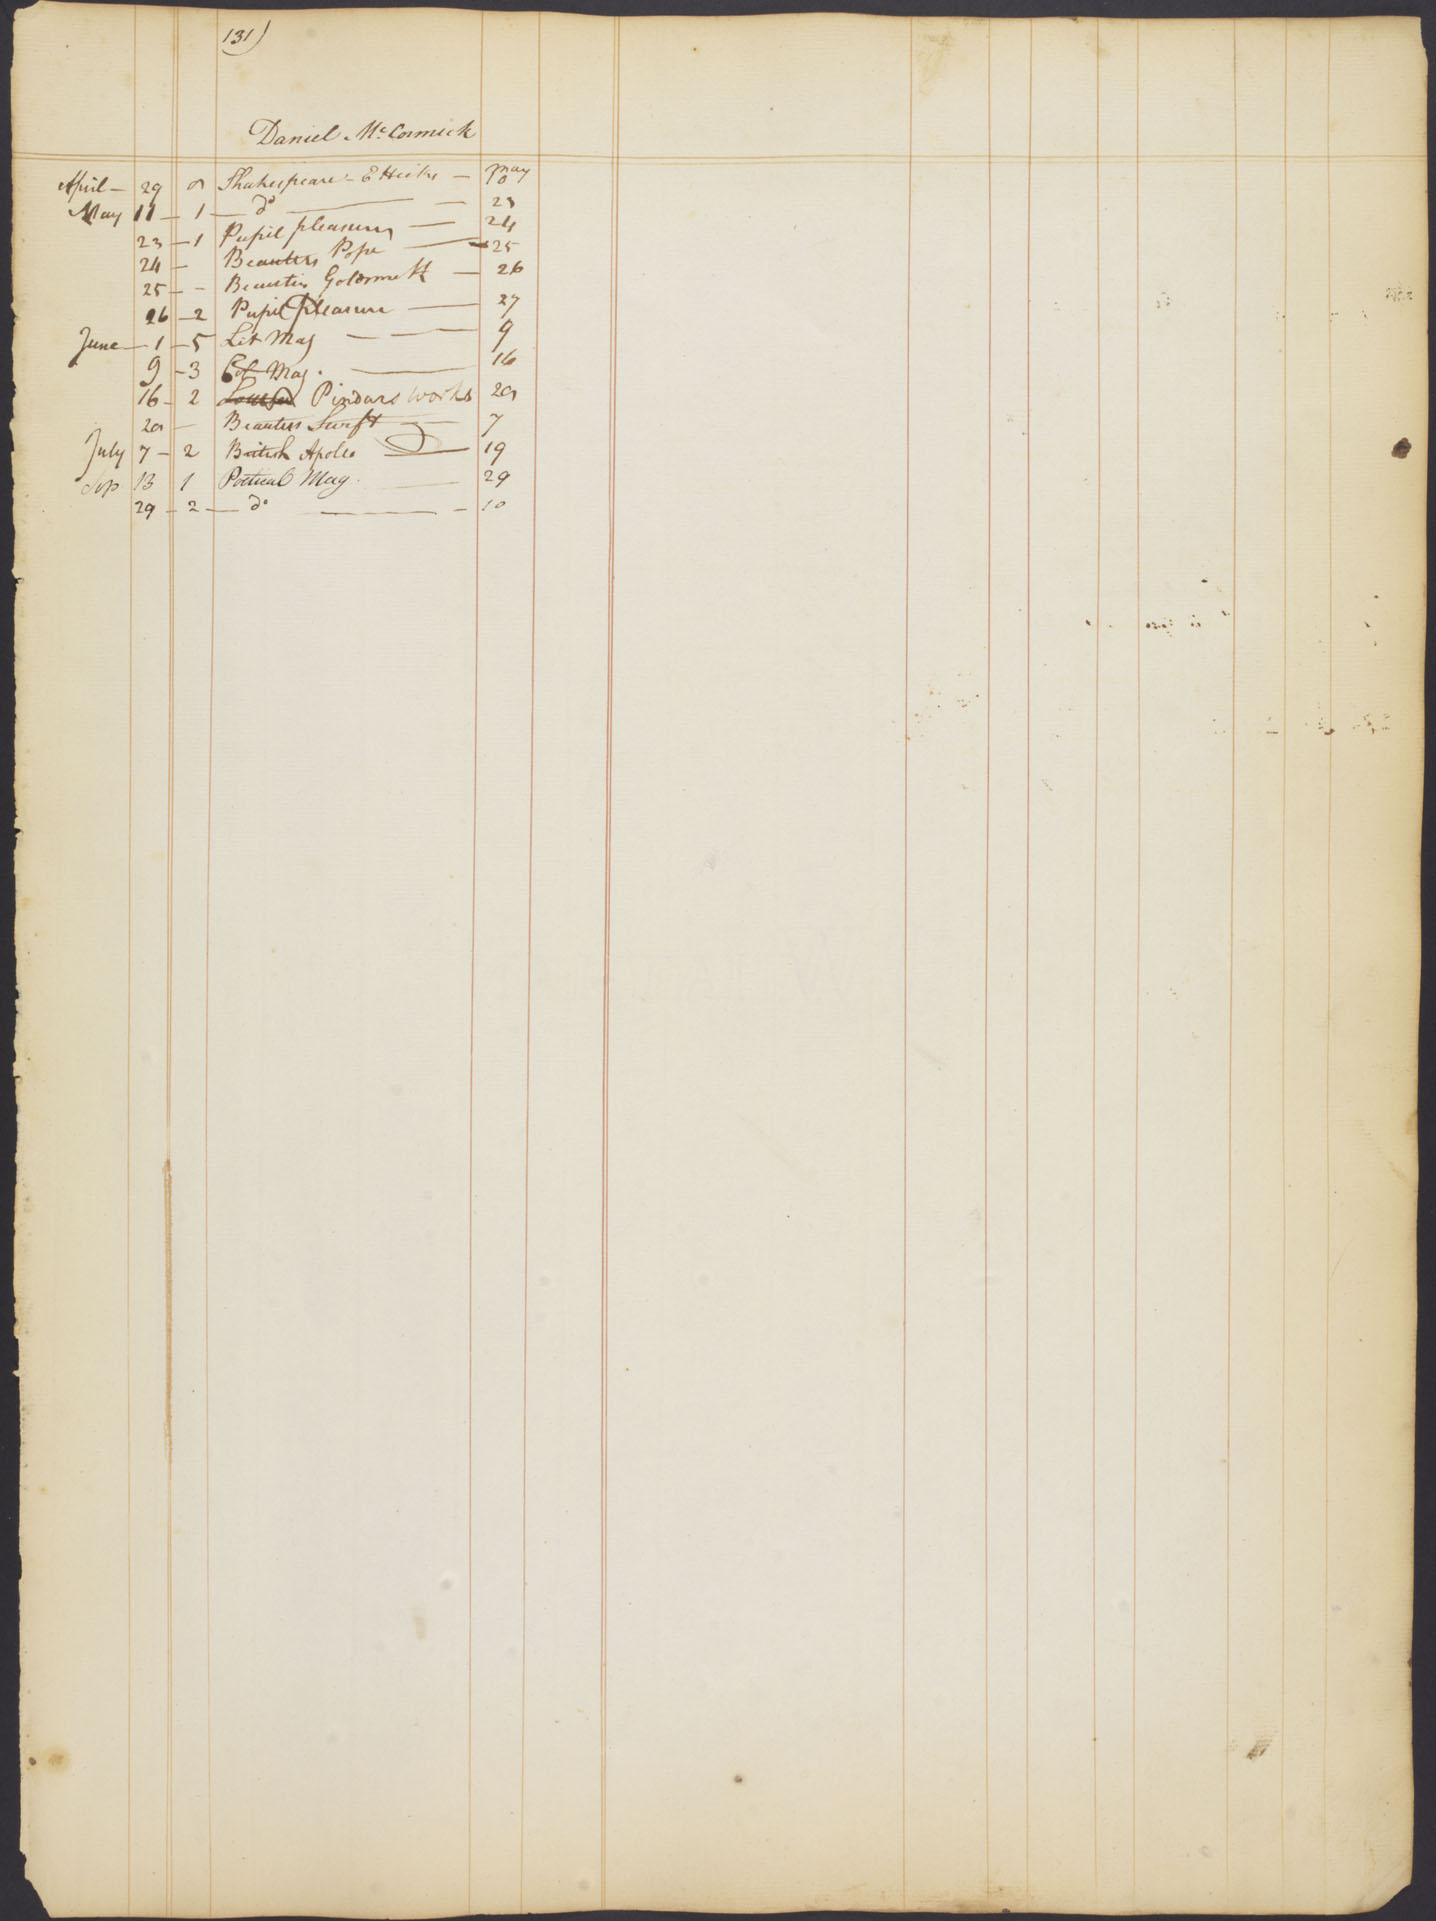 131)
Daniel McCormick
April — 29 Shakespeare — — May
May 11 — 1 — do — 23
23 — 1 Pupil pleasure — 24
24 — Beauties Pope — 25
25 — - Beauties Goldsmith — 26
26 — 2 Pupil pleasure — 27
June — 1 — 5 Lit Mag — 9
9 — 3 Mag. — 16
16 — 2 Pindars Works 20
20 — Beauties Swift — 7
July 7 — 2 British Apollo — 19
Sep 13 1 Poetical Mag. — 29
29 — 2 — do — 10